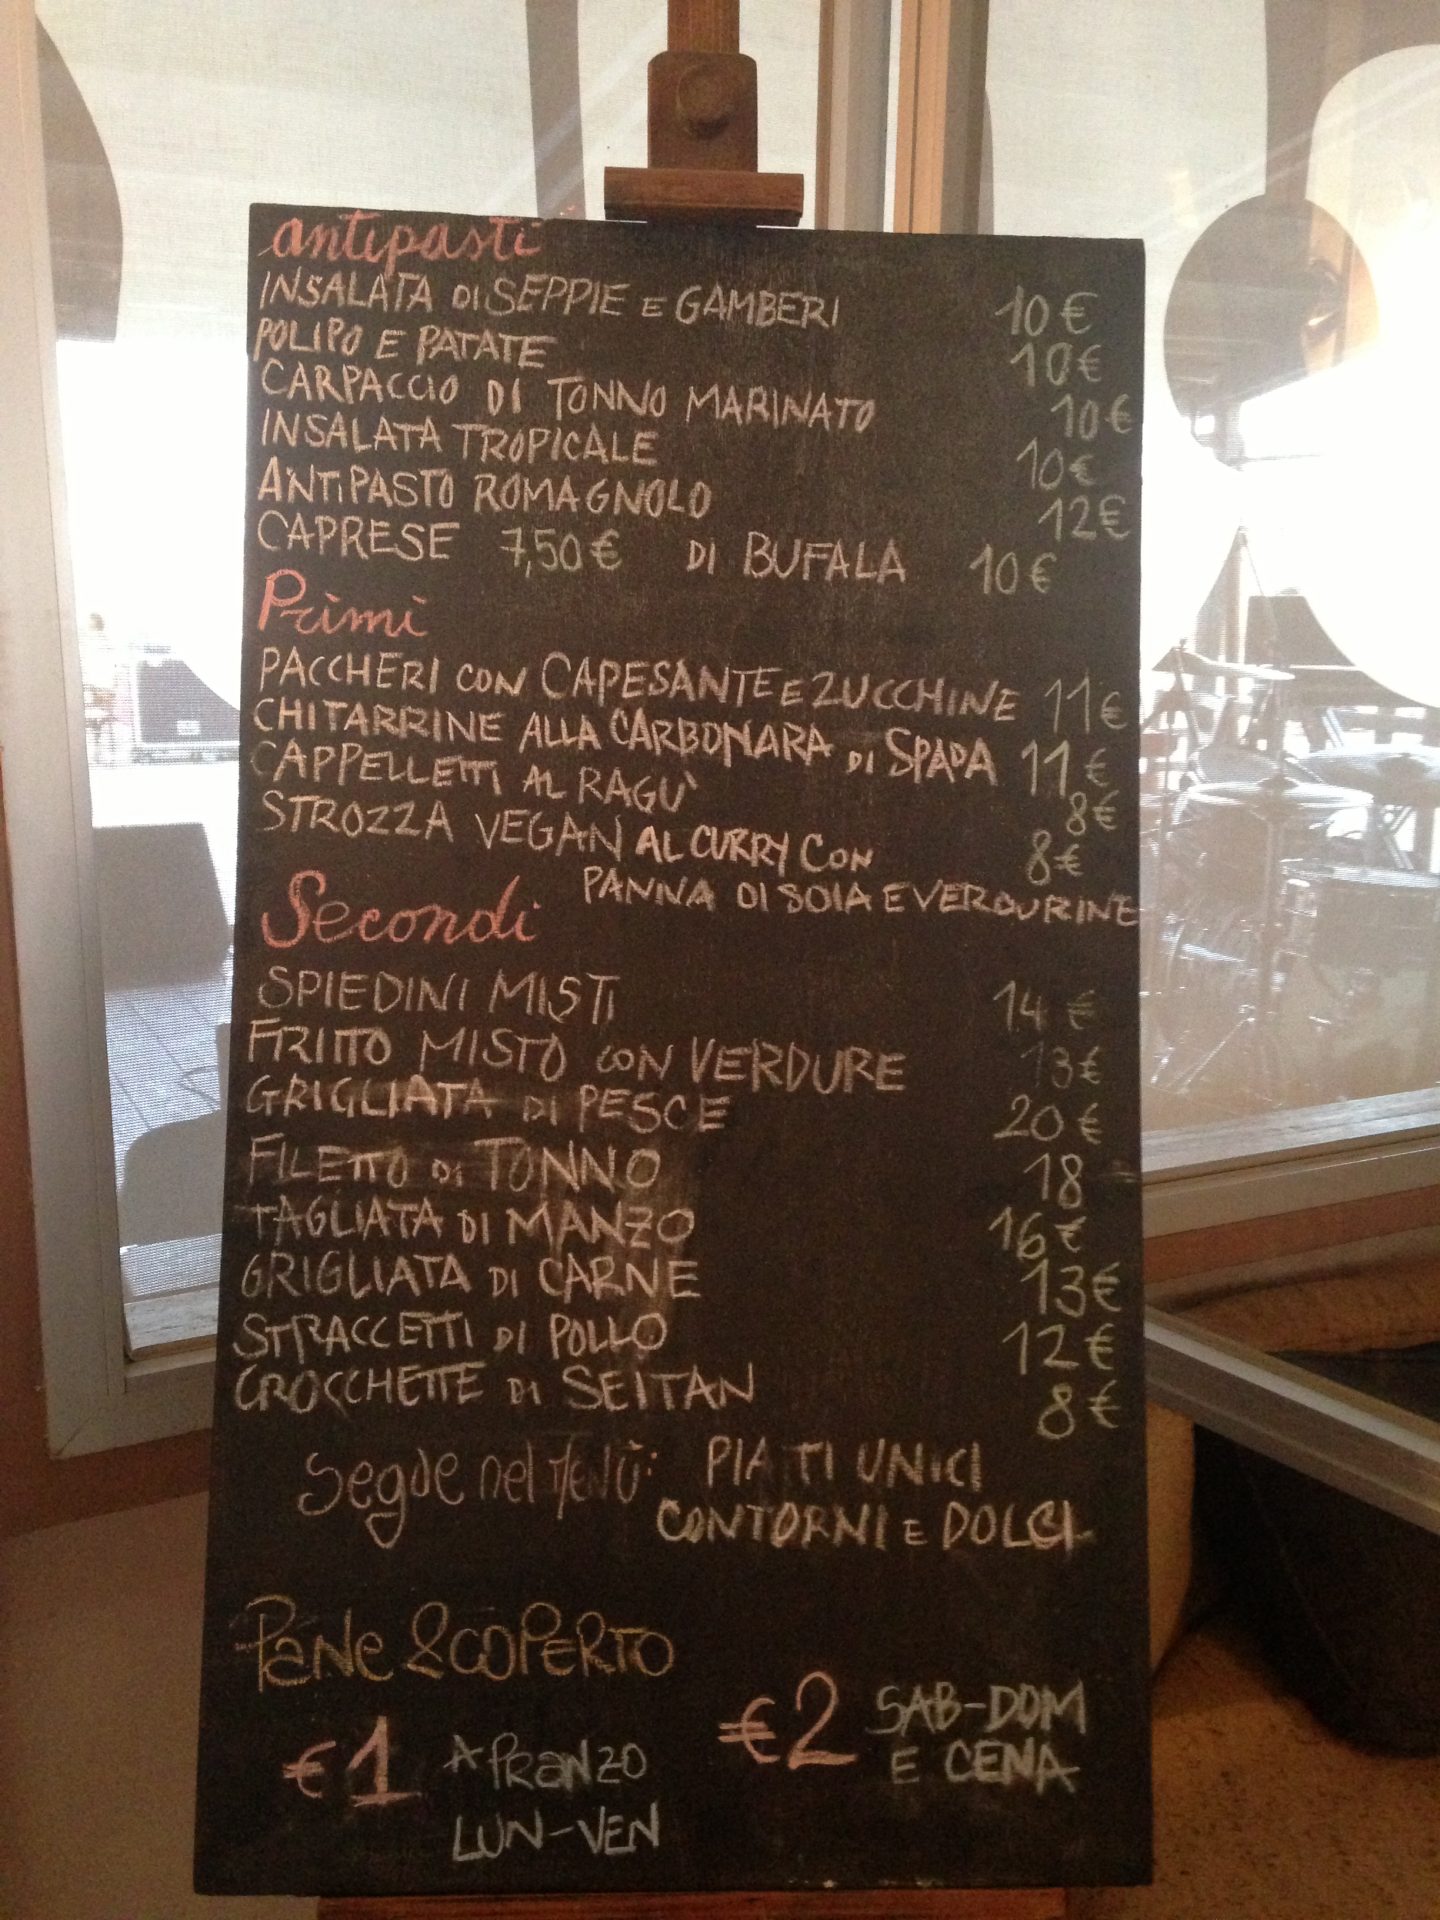 antipasti
INSALATA DI SEPPIE E GAMBERI 10€
POLIPO E PATATE 10€
CARPACCIO DI TONNO MARINATO 10€
INSALATA TROPICALE 10€
ANTIPASTO ROMAGNOLO 12€
CAPRESE 7,50€ DI BUFALA 10€
Primi
PACCHERI CON CAPESANTE E ZUCCHINE 11€
CHITARRINE ALLA CARBONARA DI SPADA 11€
CAPPELLETTI AL RAGÙ 8€
STROZZA VEGAN AL CURRY CON 8€
PANNA DI SOIA E VERDURINE
Secondi
SPIEDINI MISTI 14€
FRITTO MISTO CON VERDURE 13€
GRIGLIATA DI PESCE 20€
FILETTO DI TONNO 18
TAGLIATA DI MANZO 16€
GRIGLIATA DI CARNE 13€
STRACCETTI DI POLLO 12€
CROCCHETTE DI SEITAN 8€
Segue nel Menù: PIATTI UNICI
CONTORNI E DOLCI
Pane & COPERTO
€1 A PRANZO
LUN-VEN
€2 SAB-DOM
E CENA